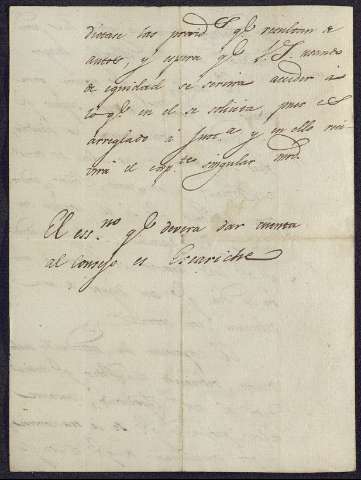 dictase las provid.s q.e resultan de
autos, y espera q.e V.S. usando
de equidad se servirá acceder à
lo q.e en el se solicita, pues es
arreglado à just.a y en ello reci
virá el exp.te singular mrd.
El ess.no q.e devera dar cuenta
al Consejo es Escariche